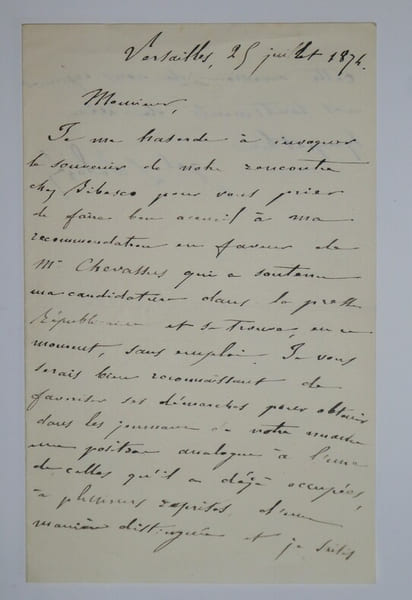 Versailles, 25 juillet 1874.
Monsieur,
Je me hasarde à invoquer
le souvenir de notre rencontre
chez Bibesco pour vous prier
de faire bon accueil à ma
recommandation en faveur de
Mr Chevassus qui a soutenu
ma candidature dans la presse
Républicaine et se trouve, en ce
moment, sans emploi. Je vous
serais bien reconnaissant de
favoriser ses démarches pour obtenir
dans les journaux de votre nuance
une position analogue à l'une
de celles qu'il a déjà occupées,
à plusieurs reprises, d'une
manière distinguée et je suis